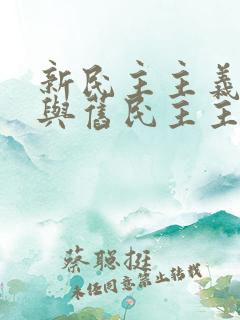 新民主主義
與舊民主主
蔡聰挺
未任同意禁止轉載